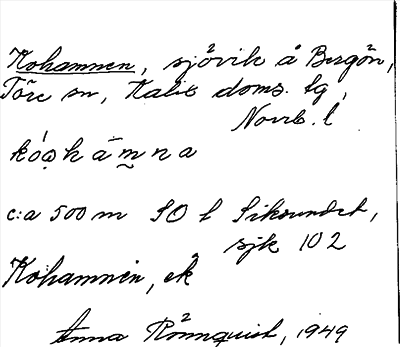 Kohamnen, sjövik å Bergön,
Töre sn, Kalix doms. lg,
Norrb. l
c:a 500 m SO l Siksundet,
sjk 102
Kohamnen, ek
Anna Rönnquist, 1949